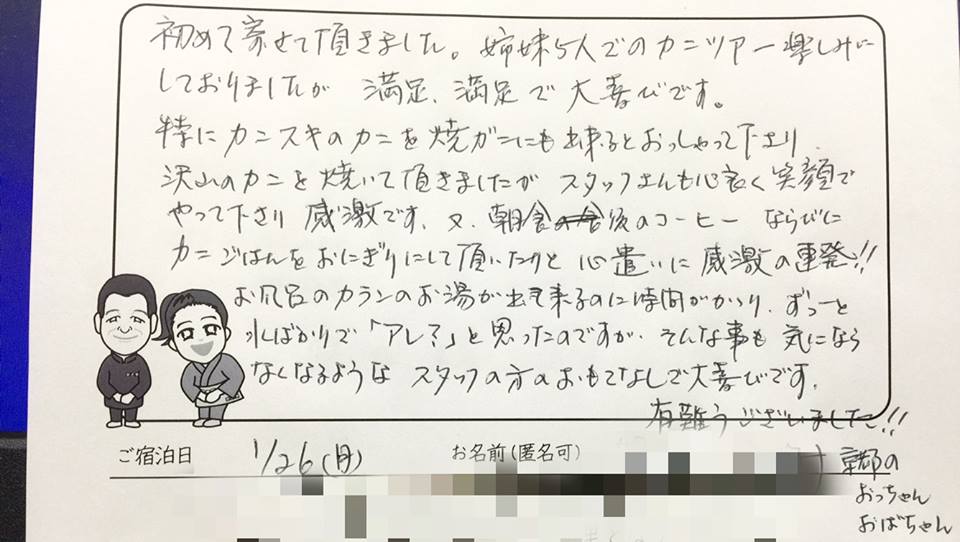 初めて寄せて頂きました。姉妹5人でのカニツアー楽しみに
しておりましたが 満足、満足で大喜びです。
特にカニスキのカニを焼ガニにも出来るとおっしゃって下さり、
沢山のカニを焼いて頂きましたが スタッフさんも心良く笑顔で
やって下さり 感激です、又、朝食後のコーヒー ならびに
カニごはんをおにぎりにして頂いたりと 心遣いに感激の連発!!
お風呂のカランのお湯が出て来るのに時間がかかり、ずっーと
水ばかりで「アレ?」と思ったのですが、そんな事も気になら
なくなるような スタッフの方のおもてなしで大喜びです。
有難うございました!!
ご宿泊日 1/26(日) お名前(匿名可)
京都の
おっちゃん
おばちゃん